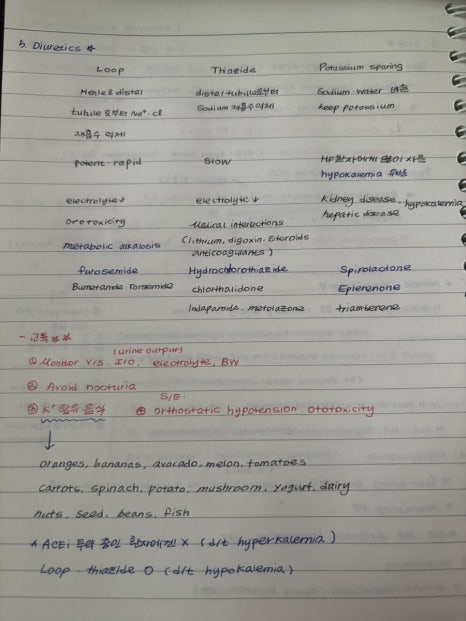 5. Diuretics ☆
Loop Thiazide Potassium sparing
Henle & distal distal tubule로부터 Sodium · water 배출
tubule 로부터 Na⁺ · Cl Sodium 재흡수 억제 keep potassium
재흡수 억제
potent · rapid Slow HF환자에게 많이 사용
hypokalemia
electrolyte↓ electrolyte ↓ Kidney disease · hypokalemia
ototoxicity Medical interections hepatic disease
metabolic alkalosis (lithium, digoxin · Steroids
anticoagulants )
furosemide Hydrochlorothiazide Spirolactone
Bumetanide · Torsemide chlorthalidone Eplerenone
Indapamide · metolazone triamterene
- 교육 ☆☆
(urine output)
① Monitor v/s · I/O , electrolyte, BW
② Avoid nocturia
S/E:
③ K⁺ 함유 음식 ④ orthostatic hypotension · ototoxicity
↓
oranges, bananas, avocado, melon, tomatoes
carrots, spinach, potato, mushroom, yogurt, dairy
nuts, seed, beans, fish
* ACEi 투여 중인 환자에겐 X (d/t hyperkalemia )
Loop · thiazide O (d/t hypokalemia )